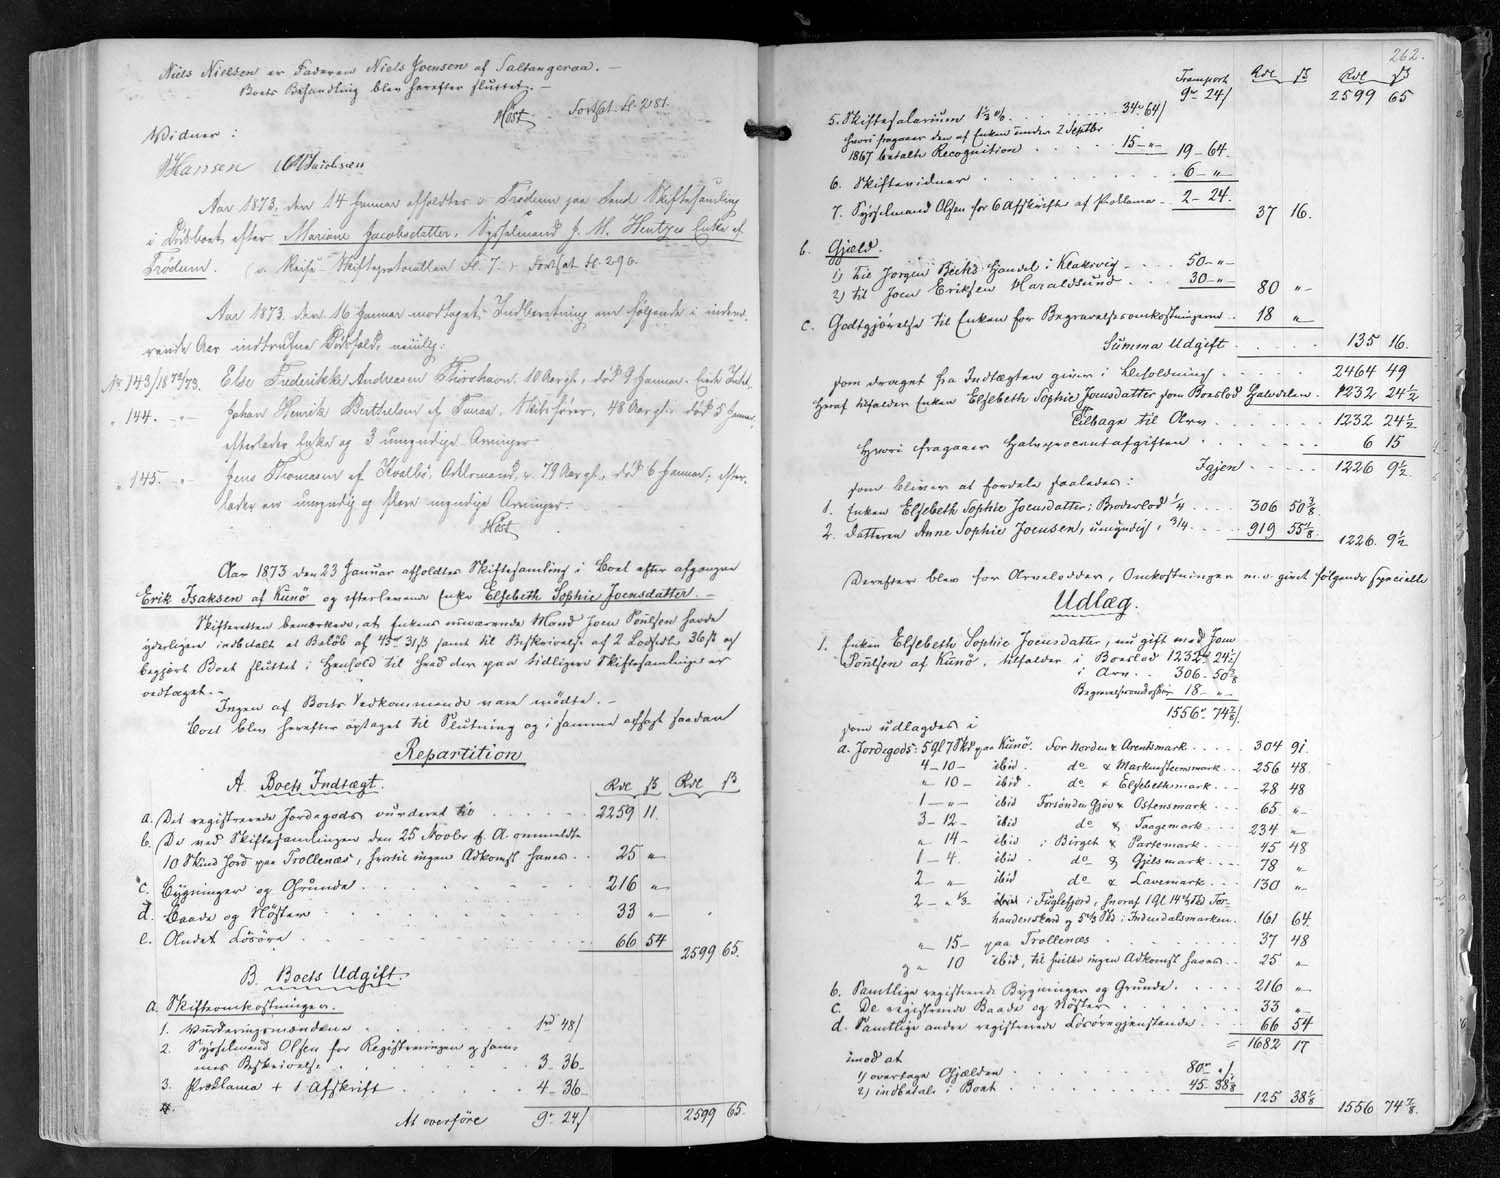 Niels Nielsen er Faderen Niels Joensen af Saltangeraa. –
Boets Behandling blev herefter sluttet. –
Høst Fortsat fl. 281.
Vidner:
Hansen Jacobsen
Aar 1873, den 14 Januar afholdtes i Frødum paa Sand Skiftesamling
i Dødsboet efter Mariane Jacobsdatter, Sysselmand J. M. Hentzes Enke af
Frødum. (v. Reise-Skifteprotocollen fl. 7.) Fortsat fl. 296.
Aar 1873 den 16 Januar modtoges Indberetning om følgende i indevæ-
rende Aar indtrufne Dødsfald, nemlig:
No. 143/1872/73. Else Frederikke Andreasen Thorshavn, 10 Aar gl., død 9 Januar.
" 144. -"- Johan Henrik Berthelsen af Famien, 48 Aar gl. død 5 Januar,
efterlader Enke og 3 umyndige Arvinger.
" 145. -"- Jens Thomasen af Kvalbø, Odelsmand, 79 Aar gl., død 6 Januar, efter-
lader en umyndig og flere myndige Arvinger.
Høst
Aar 1873 den 23 Januar afholdtes Skiftesamling i Boet efter afgangne
Erik Isaksen af Kunø og efterlevende Enke Elsebeth Sophie Joensdatter. –
Skifteretten bemærkede, at Enkens nuværende Mand Joen Poulsen havde
yderligere indbetalt et Beløb af 45 rd 31 ß samt til Beskrivelse af 2 Lodsedl. 36 ß og
begjært Boet sluttet i Henhold til hvad der paa tidligere Skiftesamlinger er
vedtaget. –
Ingen af Boets Vedkommende vare mødte. –
Boet blev herefter optaget til Slutning og i samme afsagt saadan
Repartition
A. Boets Indtægt. Rdl ß Rdl ß
a. Det registrerede Jordegods vurderet til 2259 11.
b. De ved Skiftesamlingen den 25 Novbr f. A. anmeldte
10 Skind Jord paa Trollenæs, hvortil ingen Adkomst haves 25 "
c. Bygninger og Grunde 216 "
d. Baade og Nøster 33 "
e. Andet Løsøre 66 54
2599 65.
B. Boets Udgift.
a. Skifteomkostninger.
1. Vurderingsmændene 1 rd 48 ß
2. Sysselmand Olsen for Registreringen og sam-
mes Beskrivelse 3 - 36 -
3. Proklama + 1 Afskrift 4 - 36 -
At overføre 9 r 24 ß 2599 65.
262.
Transport Rdl ß Rdl ß
9 r 24 ß 2599 65
5. Skiftesalarium 1½ % 34 r 64 ß
hvori fragaaer den af Enken under 2 Septbr
1867 betalte Recognition 15 - " - 19 - 64.
6. Skiftevidner 6 - "
7. Sysselmand Olsen for 6 Afskrifter af Proklama 2 - 24.
37 16.
b. Gjæld.
1) til Jørgen Becks Handel i Klaksvig 50 - " -
2) til Joen Eriksen Haraldsund 30 - " -
80 "
c. Godtgjørelse til Enken for Begravelsesomkostningerne 18 "
Summa Udgift 135 16.
som draget fra Indtægten giver i Beholdning 2464 49
Heraf tilfalder Enken Elsebeth Sophie Joensdatter som Boeslod Halvdelen 1232 24½
Tilbage til Arv 1232 24½
Hvori fragaaer Halvprocentafgiften 6 15
Igjen 1226 9½
som bliver at fordele saaledes:
1. Enken Elsebeth Sophie Joensdatter; Broderlod ¼ 306 50⅜
2. Datteren Anne Sophie Joensen, umyndig, ¾ 919 55⅛
1226. 9½
Derefter blev for Arvelodder, Omkostninger m. v. givet følgende specielle
Udlæg.
1. Enken Elsebeth Sophie Joensdatter, nu gift med Joen
Poulsen af Kunø, tilfalder i Boeslod 1232 r 24½ ß
i Arv 306 - 50⅜
18 - " -
1556 r 74⅞ ß
som udlagdes i
a. Jordegods: 5 Gl 7 Skd paa Kunø. for Norden & Arentsmark 304 91.
4 - 10 - ibid. do & Markusteensmark 256 48.
" 10 - ibid. do & Elsebethsmark 28 48
1 - " - ibid Forsønden Gjøv & Ostensmark 65 "
3 - 12 - ibid do & Taagemark 234 "
" 14 - ibid: Birget & Partemark 45 48
1 - 4. ibid. do & Gjelsmark 78 "
2 - " - ibid do & Lavemark 130 "
2 - " ⅓ - i Fuglefjord, hvoraf 1 Gl 14⅔ Skd For-
handenskard og 5⅔ Skd i Inderdalsmarken 161 64.
" 15 - paa Trollenæs 37 48
og " 10 ibid, til hvilke ingen Adkomst haves 25 "
b. Samtlige registrerede Bygninger og Grunde 216 "
c. De registrerede Baade og Nøster 33 "
d. Samtlige andre registrerede Løsøregjenstande 66 54
= 1682 17
imod at
1) overtage Gjælden 80 r " ß
2) indbetale i Boet 45 - 38⅛
125 38⅛ 1556 74⅞.